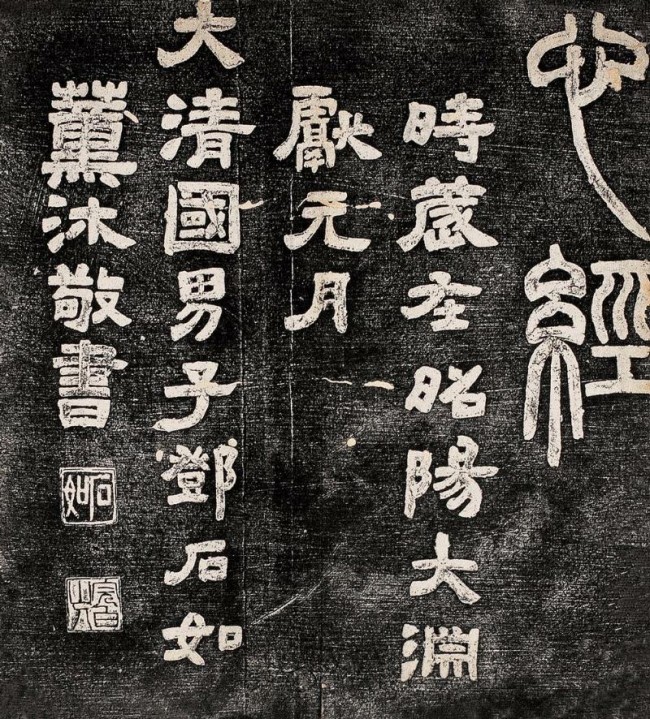 心經
時葴在昭陽大淵
獻元月
大清國男子鄧石如
薰沐敬書
石如